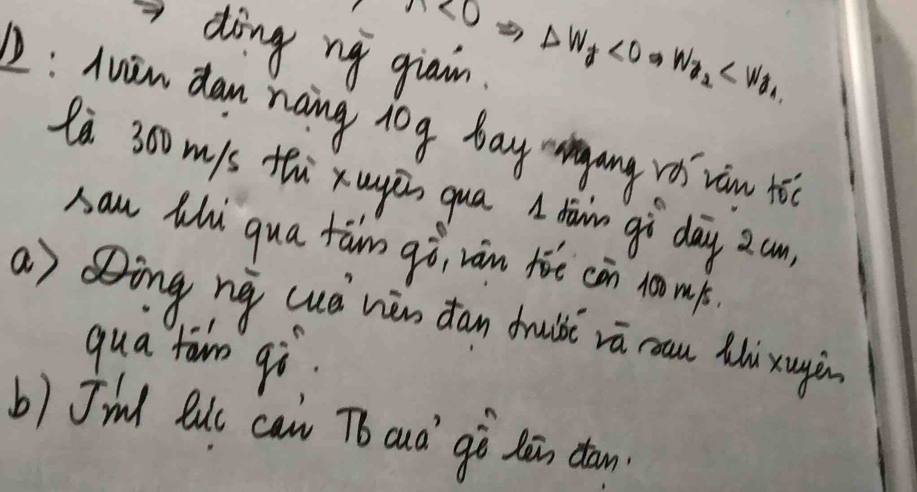 ⇒ động nğ giảm.
A<0 ⇒ ΔWđ <0 ⇒ Wđ2 < Wđ1.
VD: 1 viên đạn nặng 10g bay ngang với vận tốc
là 300 m/s thì xuyên qua 1 tấm gỗ dày 2 cm,
sau khi qua tấm gỗ, vận tốc còn 100 m/s.
a) Động nğ của viên đạn trước và sau khi xuyên
qua tấm gỗ.
b) Tính lực cản Tb của gỗ lên đạn.